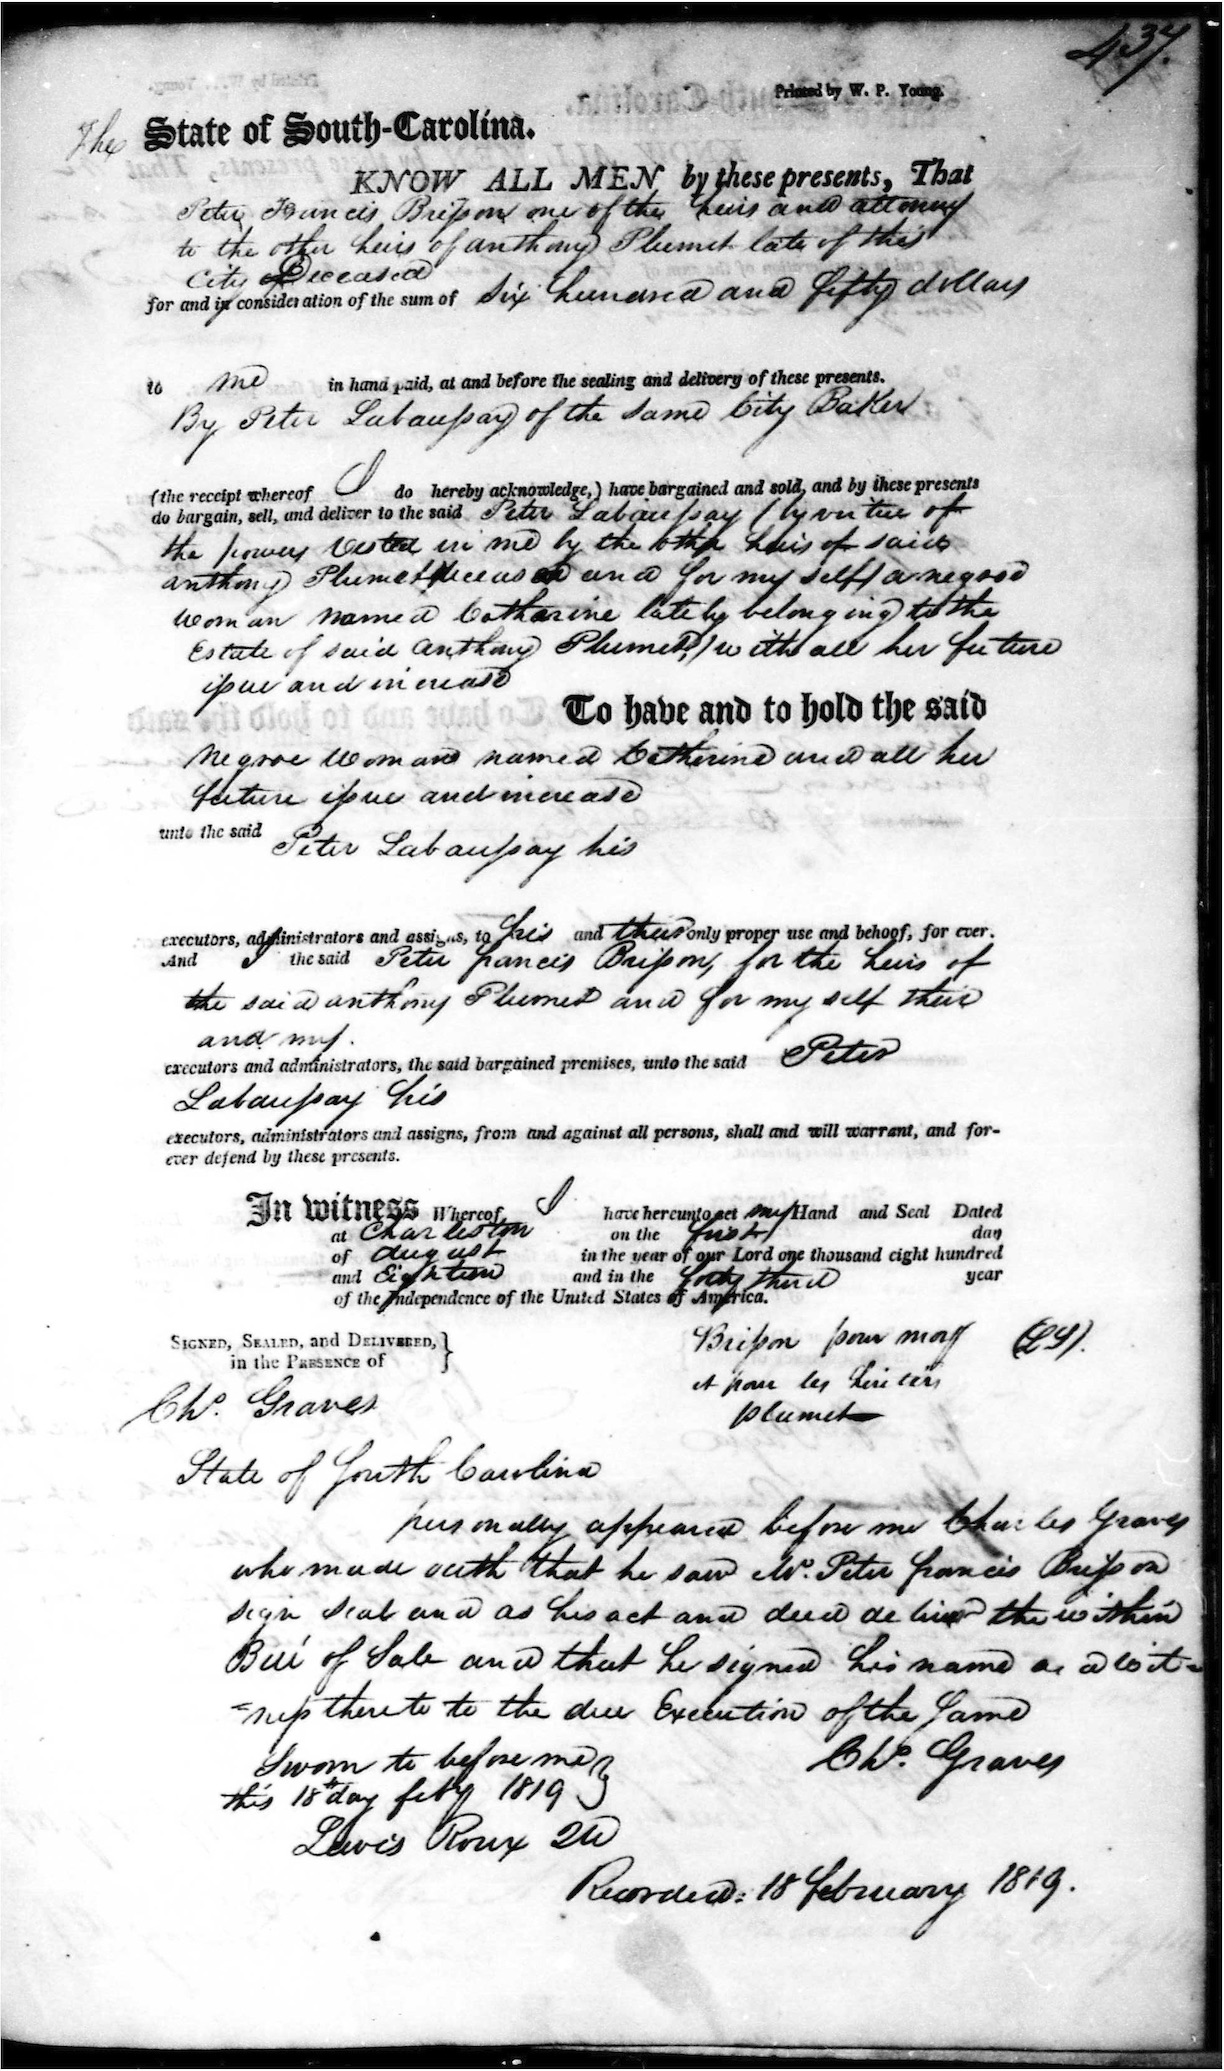 437.
Printed by W. P. Young.
The State of South-Carolina.
KNOW ALL MEN by these presents, That
Peter Francis Brisson one of the heirs and attorney
to the other heirs of anthony Plumet late of this
City Deceased
for and in consideration of the sum of Six hundred and fifty dollars
to me in hand paid, at and before the sealing and delivery of these presents.
By Peter Labaussay of the same City Baker
(the receipt whereof I do hereby acknowledge,) have bargained and sold, and by these presents
do bargain, sell, and deliver to the said Peter Labaussay (by virtue of
the powers vested in me by the other heirs of said
anthony Plumet deceased and for my self) a negroe
woman named Catharine lately belonging to the
Estate of said anthony Plumet,) with all her future
issue and increase
To have and to hold the said
Negroe Woman named Catherine and all her
future issue and increase
unto the said Peter Labaussay his
executors, administrators and assigns, to his and their only proper use and behoof, for ever.
And I the said Peter francis Brisson, for the heirs of
the said anthony Plumet and for my self their
and my.
executors and administrators, the said bargained premises, unto the said Peter
Labaussay his
executors, administrators and assigns, from and against all persons, shall and will warrant, and for-
ever defend by these presents.
In witness Whereof, I have hereunto set my Hand and Seal Dated
at Charleston on the first day
of august in the year of our Lord one thousand eight hundred
and Eighteen and in the forty third year
of the Independence of the United States of America.
SIGNED, SEALED, and DELIVERED,
in the PRESENCE of
Brisson pour moy (LS).
et pour les heritiers
plumet
Chs. Graves
State of South Carolina
personally appeared before me Charles Graves
who made outh that he saw Mr. Peter francis Brisson
sign seal and as his act and deed deliver the within
Bill of Sale and that he signed his name as a wit=
=ness thereto to the due Execution of the Same
Sworn to before me
Chs. Graves
this 18th day feby 1819
Lewis Roux QU
Recorded: 18 february 1819.